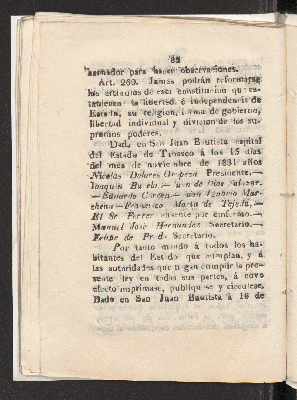 82
bernador para hacer observaciones.
Art. 260. Jamas podrán reformarse
los artículos de esta constitucion que es-
tablecen la libertad é independencia de
Estado, su religion, forma de gobierno,
libertad individual y division de los su-
premos poderes.
Dada en San Juan Bautista capital
del Estado de Tabasco á los 15 dias
del mes de noviembre de 1831 años
Nicolas Dolores Oropeza Presidente.—
Joaquin
—Eduardo Correa.—Juan Ignacio Mar-
chena—Francisco Maria de Tejeda,—
El Sr Ferrer ausente por enfermo.—
Manuel José Hernandez Secretario.—
Felipe de Secretario.
Por tanto mando á todos los ha-
bitantes del Estado que cumplan, y á
las autoridades que hagan cumplir la pre-
sente ley en todas sus partes, á cuyo
efecto imprimase, publiquese y circulese,
Dado en San Juan Bautista á 16 de